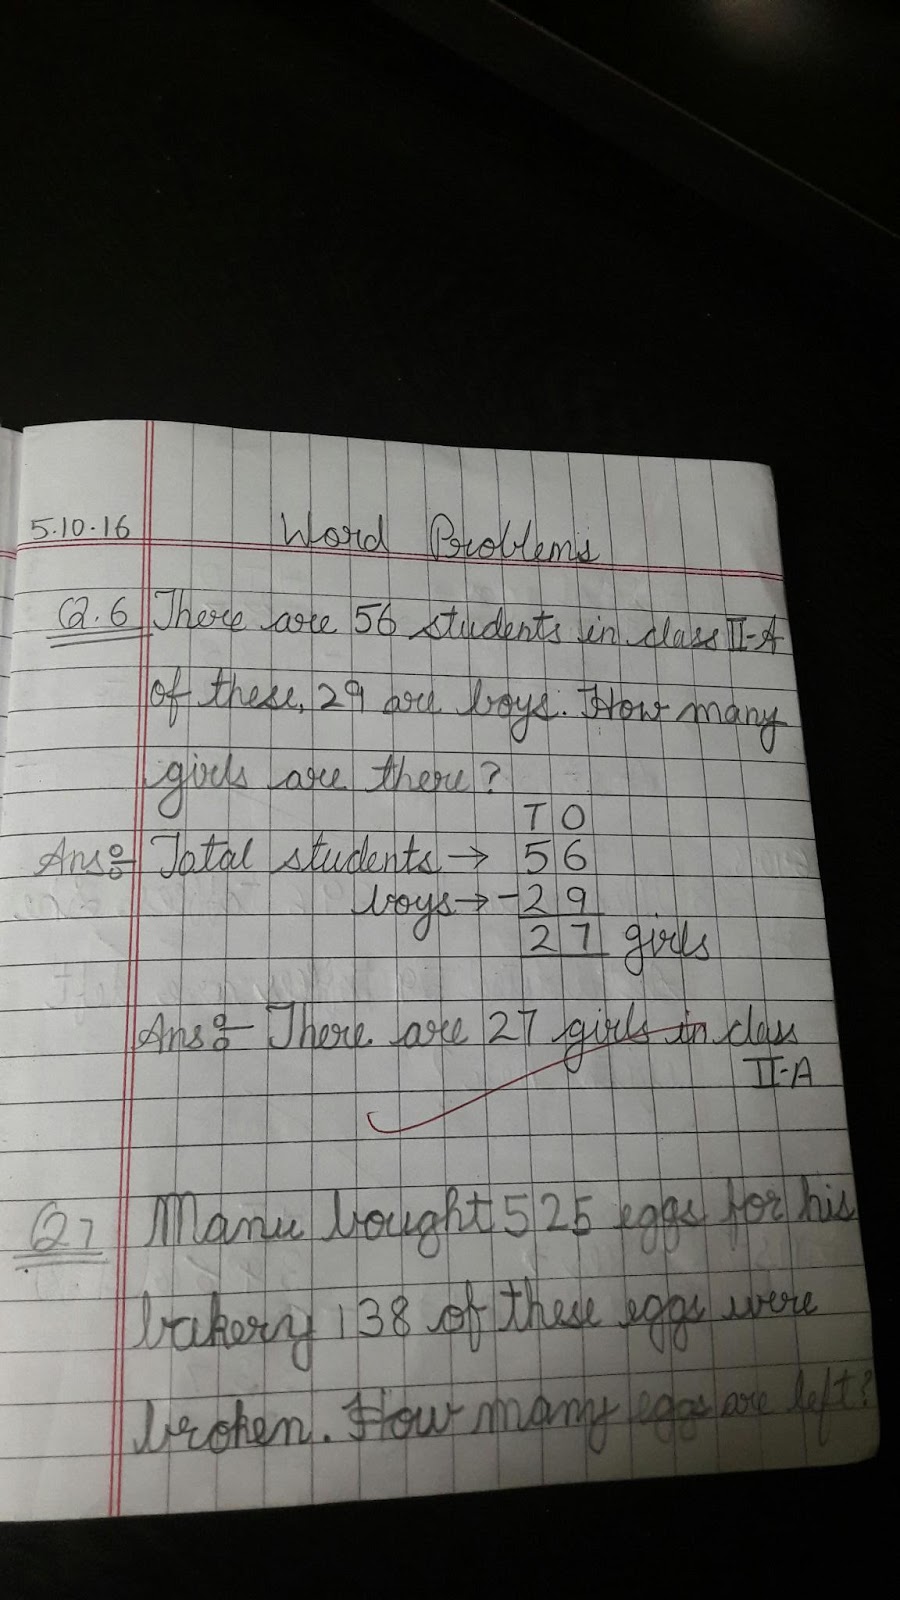 5.10.16 Word Problems
Q.6 There are 56 students in class II-A
of these, 29 are boys. How many
girls are there?
T O
Ans:- Total students → 56
boys → -29
27 girls
Ans:- There are 27 girls in class
II-A
Q7 Manu bought 525 eggs for his
bakery 138 of these eggs were
broken. How many eggs are left?